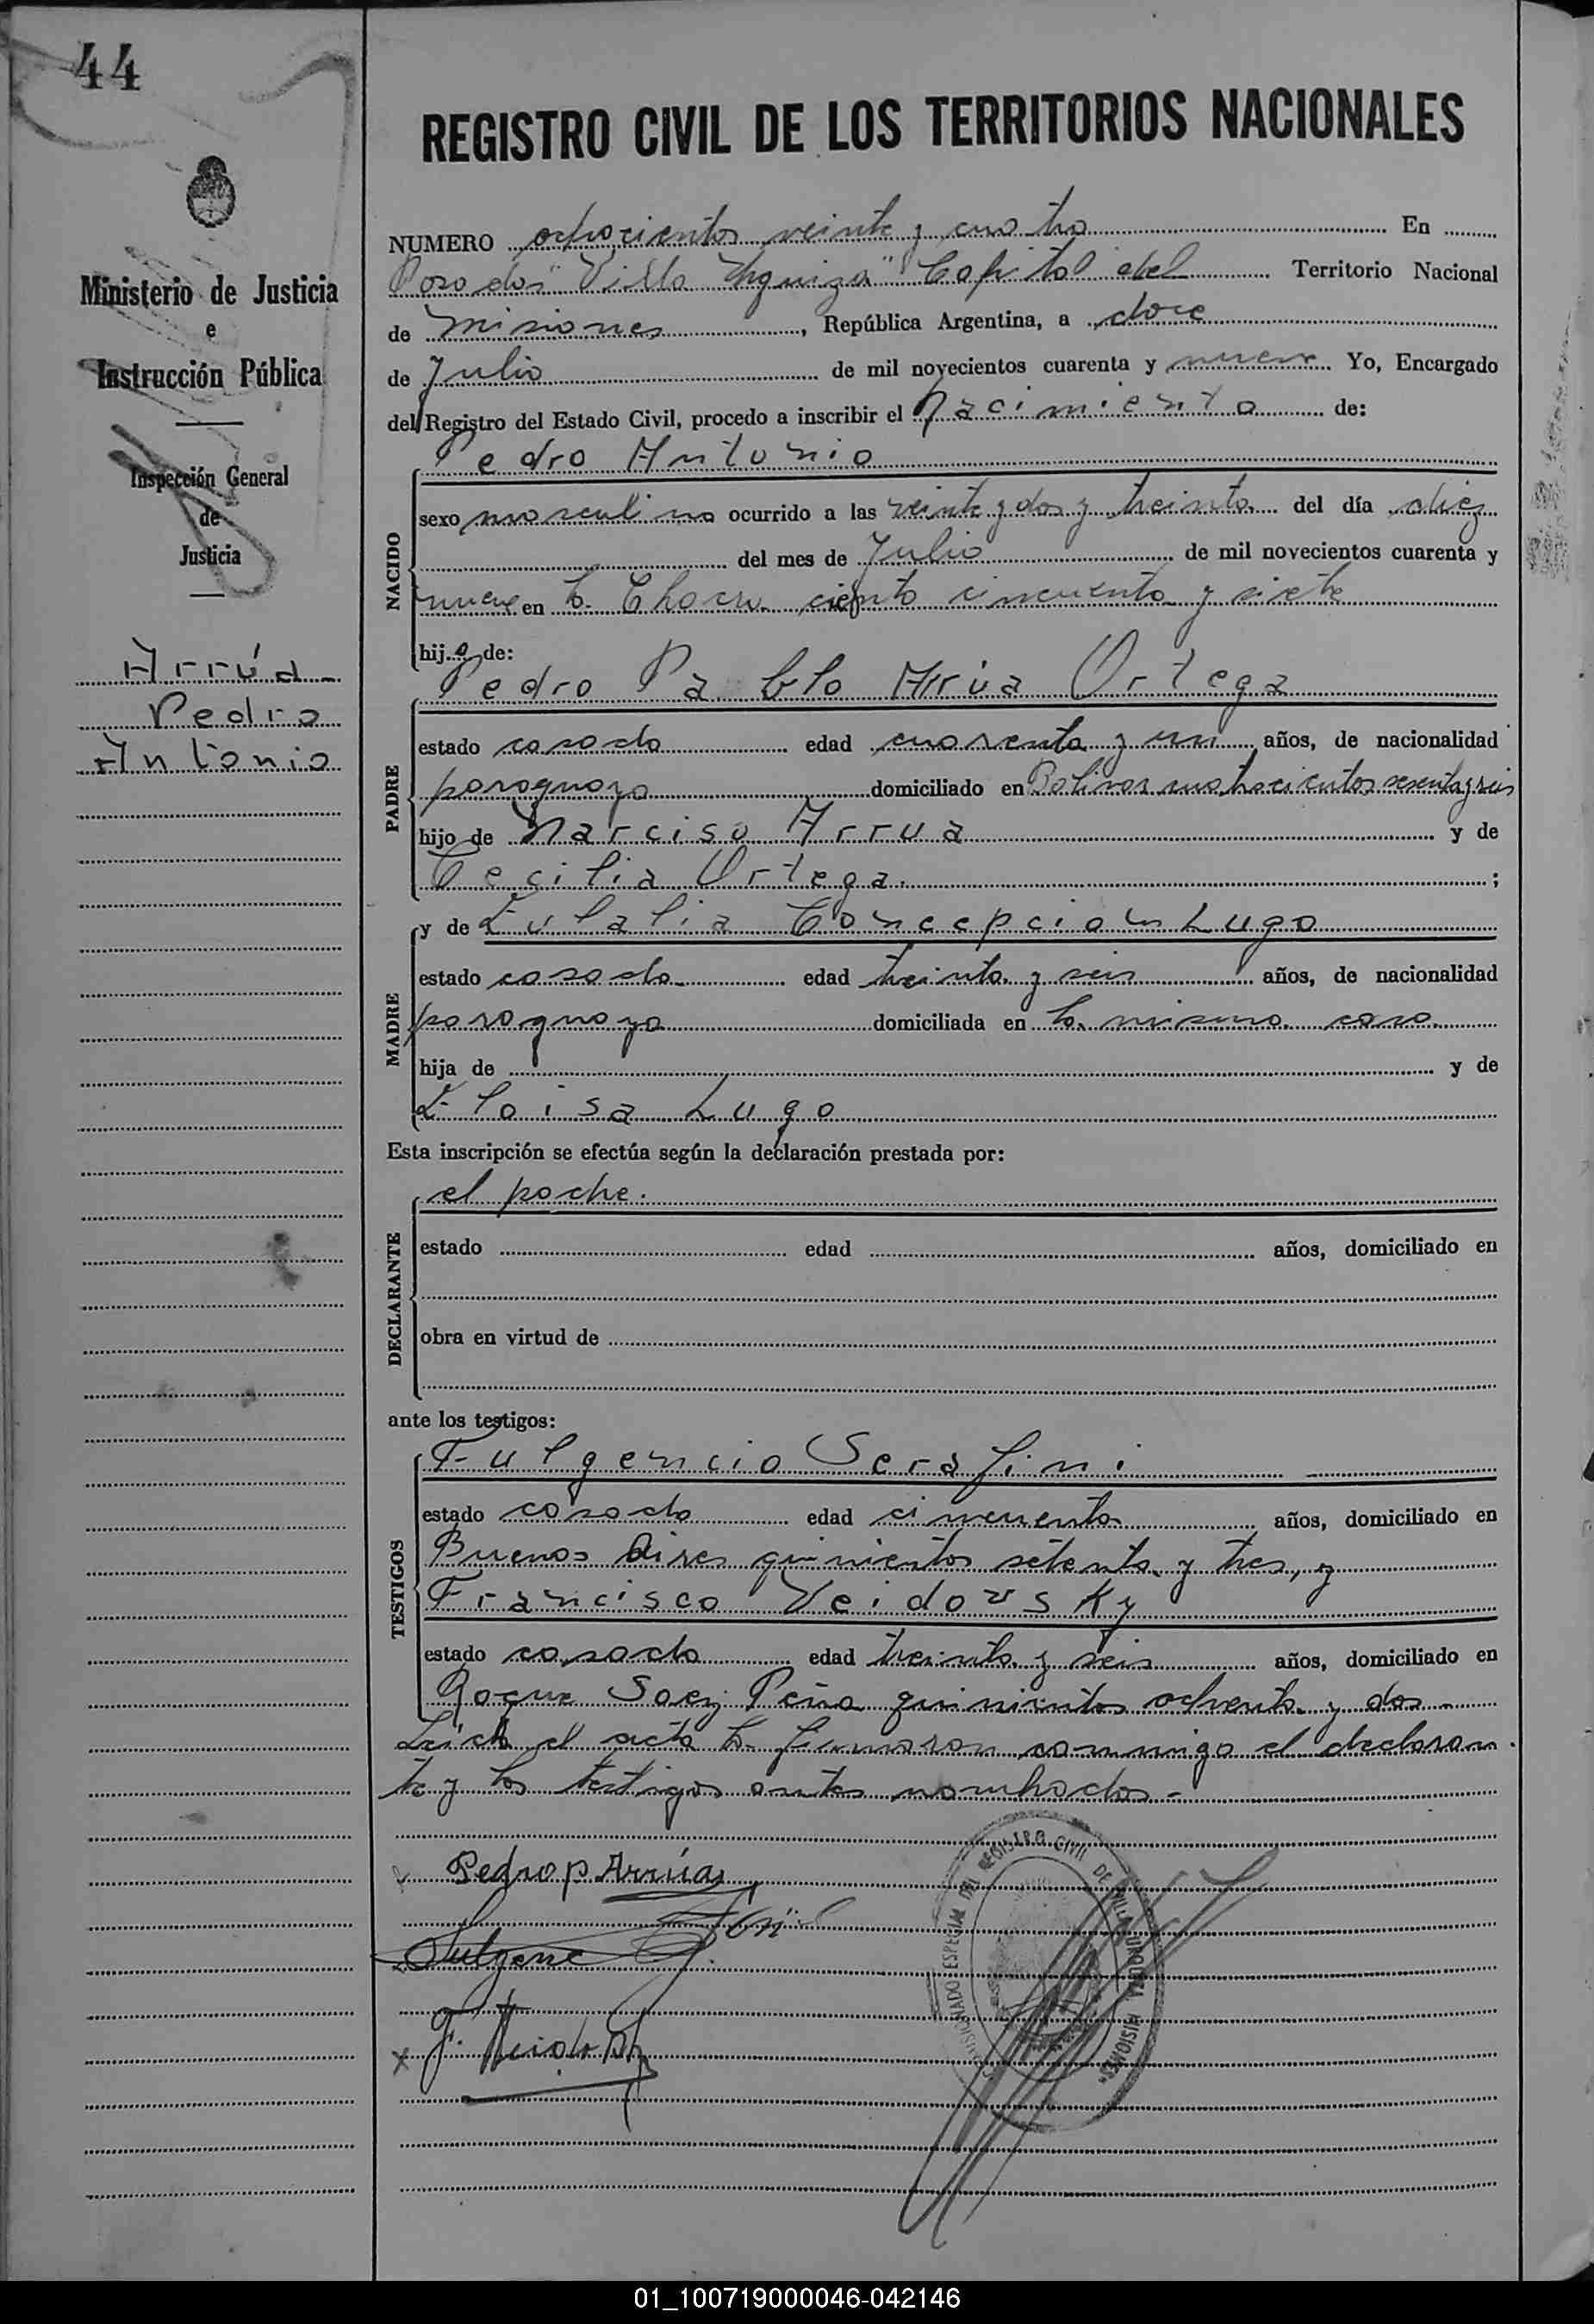 44
REGISTRO CIVIL DE LOS TERRITORIOS NACIONALES
Ministerio de Justicia
e
Instrucción Pública
Inspección General
de
Justicia
Arrúa
Pedro
Antonio
NUMERO ochocientos veinte y cuatro En
Posadas "Villa Urquiza" Capital del Territorio Nacional
de Misiones, República Argentina, a doce
de Julio de mil novecientos cuarenta y nueve Yo, Encargado
del Registro del Estado Civil, procedo a inscribir el nacimiento de:
Pedro Antonio
NACIDO
sexo masculino ocurrido a las veinte y dos y treinta del día diez
del mes de Julio de mil novecientos cuarenta y
nueve en la Chacra ciento cincuenta y siete
hijo de:
Pedro Pablo Arrúa Ortega
PADRE
estado casado edad cuarenta y un años, de nacionalidad
paraguaya domiciliado en Bolivar cuatrocientos sesenta y seis
hijo de Narciso Arrua y de
Cecilia Ortega. ;
MADRE
y de Eulalia Concepcion Lugo
estado casada edad treinta y seis años, de nacionalidad
paraguaya domiciliada en la misma casa
hija de y de
Eloisa Lugo
Esta inscripción se efectúa según la declaración prestada por:
el padre.
DECLARANTE
estado edad años, domiciliado en
obra en virtud de
ante los testigos:
TESTIGOS
Fulgencio Serafini
estado casado edad cincuenta años, domiciliado en
Buenos Aires quinientos setenta y tres, y
Francisco Neidovsky
estado casado edad treinta y seis años, domiciliado en
Roque Saez Peña quinientos ochenta y dos
Leída el acta la firmaron conmigo el declaran
te y los testigos antes nombrados.-
Pedro P. Arrúa
REGISTRO CIVIL DE VILLA URQUIZA MISIONES
01_100719000046-042146